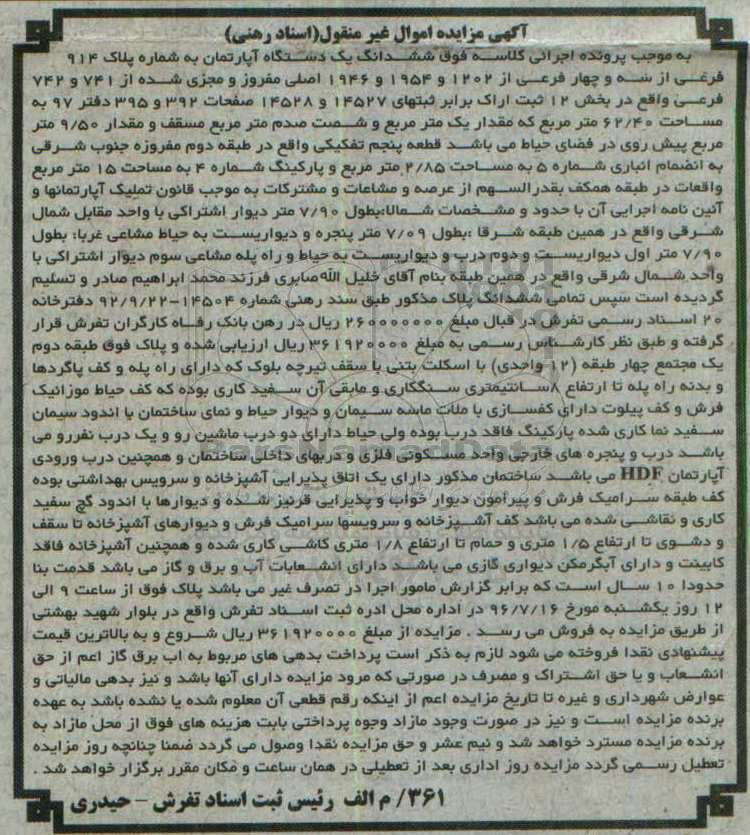 آگهی مزایده اموال غیر منقول(اسناد رهنی)
به موجب پرونده اجرائی کلاسه فوق ششدانگ یک دستگاه آپارتمان به شماره پلاک ۹۱۴
فرعی از سه و چهار فرعی از ۱۲۰۲ و ۱۹۵۴ و ۱۹۴۶ اصلی مفروز و مجزی شده از ۷۴۱ و ۷۴۲
فرعی واقع در بخش ۱۲ ثبت اراک برابر ثبتهای ۱۴۵۲۷ و ۱۴۵۲۸ صفحات ۳۹۲ و ۳۹۵ دفتر ۹۷ به
مساحت ۶۲/۴۰ متر مربع که مقدار یک متر مربع و شصت صدم متر مربع مسقف و مقدار ۹/۵۰ متر
مربع پیش روی در فضای حیاط می باشد قطعه پنجم تفکیکی واقع در طبقه دوم مفروزه جنوب شرقی
به انضمام انباری شماره ۵ به مساحت ۲/۸۵ متر مربع و پارکینگ شماره ۴ به مساحت ۱۵ متر مربع
واقعات در طبقه همکف بقدرالسهم از عرصه و مشاعات و مشترکات به موجب قانون تملیک آپارتمانها و
آئین نامه اجرایی آن با حدود و مشخصات شمالا:بطول ۷/۹۰ متر دیوار اشتراکی با واحد مقابل شمال
شرقی واقع در همین طبقه شرقا :بطول ۷/۰۹ متر پنجره و دیواریست به حیاط مشاعی غربا: بطول
۷/۹۰ متر اول دیواریست و دوم درب و دیواریست به حیاط و راه پله مشاعی سوم دیوار اشتراکی با
واحد شمال شرقی واقع در همین طبقه بنام آقای خلیل الله صابری فرزند محمد ابراهیم صادر و تسلیم
گردیده است سپس تمامی ششدانگ پلاک مذکور طبق سند رهنی شماره ۱۴۵۰۴–۹۲/۹/۲۲ دفترخانه
۲۰ اسناد رسمی تفرش در قبال مبلغ ۲۶۰۰۰۰۰۰۰ ریال در رهن بانک رفاه کارگران تفرش قرار
گرفته و طبق نظر کارشناس رسمی به مبلغ ۳۶۱۹۲۰۰۰۰ ریال ارزیابی شده و پلاک فوق طبقه دوم
یک مجتمع چهار طبقه (۱۲ واحدی) با اسکلت بتنی با سقف تیرچه بلوک که دارای راه پله و کف پاگردها
و بدنه راه پله تا ارتفاع ۸سانتیمتری سنگکاری و مابقی آن سفید کاری بوده که کف حیاط موزائیک
فرش و کف پیلوت دارای کفسازی با ملات ماسه سیمان و دیوار حیاط و نمای ساختمان با اندود سیمان
سفید نما کاری شده پارکینگ فاقد درب بوده ولی حیاط دارای دو درب ماشین رو و یک درب نفررو می
باشد درب و پنجره های خارجی واحد مسکونی فلزی و دربهای داخلی ساختمان و همچنین درب ورودی
آپارتمان HDF می باشد ساختمان مذکور دارای یک اتاق پذیرایی آشپزخانه و سرویس بهداشتی بوده
کف طبقه سرامیک فرش و پیرامون دیوار خواب و پذیرایی قرنیز شده و دیوارها با اندود گچ سفید
کاری و نقاشی شده می باشد کف آشپزخانه و سرویسها سرامیک فرش و دیوارهای آشپزخانه تا سقف
و دشوی تا ارتفاع ۱/۵ متری و حمام تا ارتفاع ۱/۸ متری کاشی کاری شده و همچنین آشپزخانه فاقد
کابینت و دارای آبگرمکن دیواری گازی می باشد دارای انشعابات آب و برق و گاز می باشد قدمت بنا
حدودا ۱۰ سال است که برابر گزارش مامور اجرا در تصرف غیر می باشد پلاک فوق از ساعت ۹ الی
۱۲ روز یکشنبه مورخ ۹۶/۷/۱۶ در اداره محل ادره ثبت اسناد تفرش واقع در بلوار شهید بهشتی
از طریق مزایده به فروش می رسد . مزایده از مبلغ ۳۶۱۹۲۰۰۰۰ ریال شروع و به بالاترین قیمت
پیشنهادی نقدا فروخته می شود لازم به ذکر است پرداخت بدهی های مربوط به اب برق گاز اعم از حق
انشعاب و یا حق اشتراک و مصرف در صورتی که مرود مزایده دارای آنها باشد و نیز بدهی مالیاتی و
عوارض شهرداری و غیره تا تاریخ مزایده اعم از اینکه رقم قطعی آن معلوم شده یا نشده باشد به عهده
برنده مزایده است و نیز در صورت وجود مازاد وجوه پرداختی بابت هزینه های فوق از محل مازاد به
برنده مزایده مسترد خواهد شد و نیم عشر و حق مزایده نقدا وصول می گردد ضمنا چنانچه روز مزایده
تعطیل رسمی گردد مزایده روز اداری بعد از تعطیلی در همان ساعت و مکان مقرر برگزار خواهد شد .
۳۶۱/ م الف رئیس ثبت اسناد تفرش – حیدری